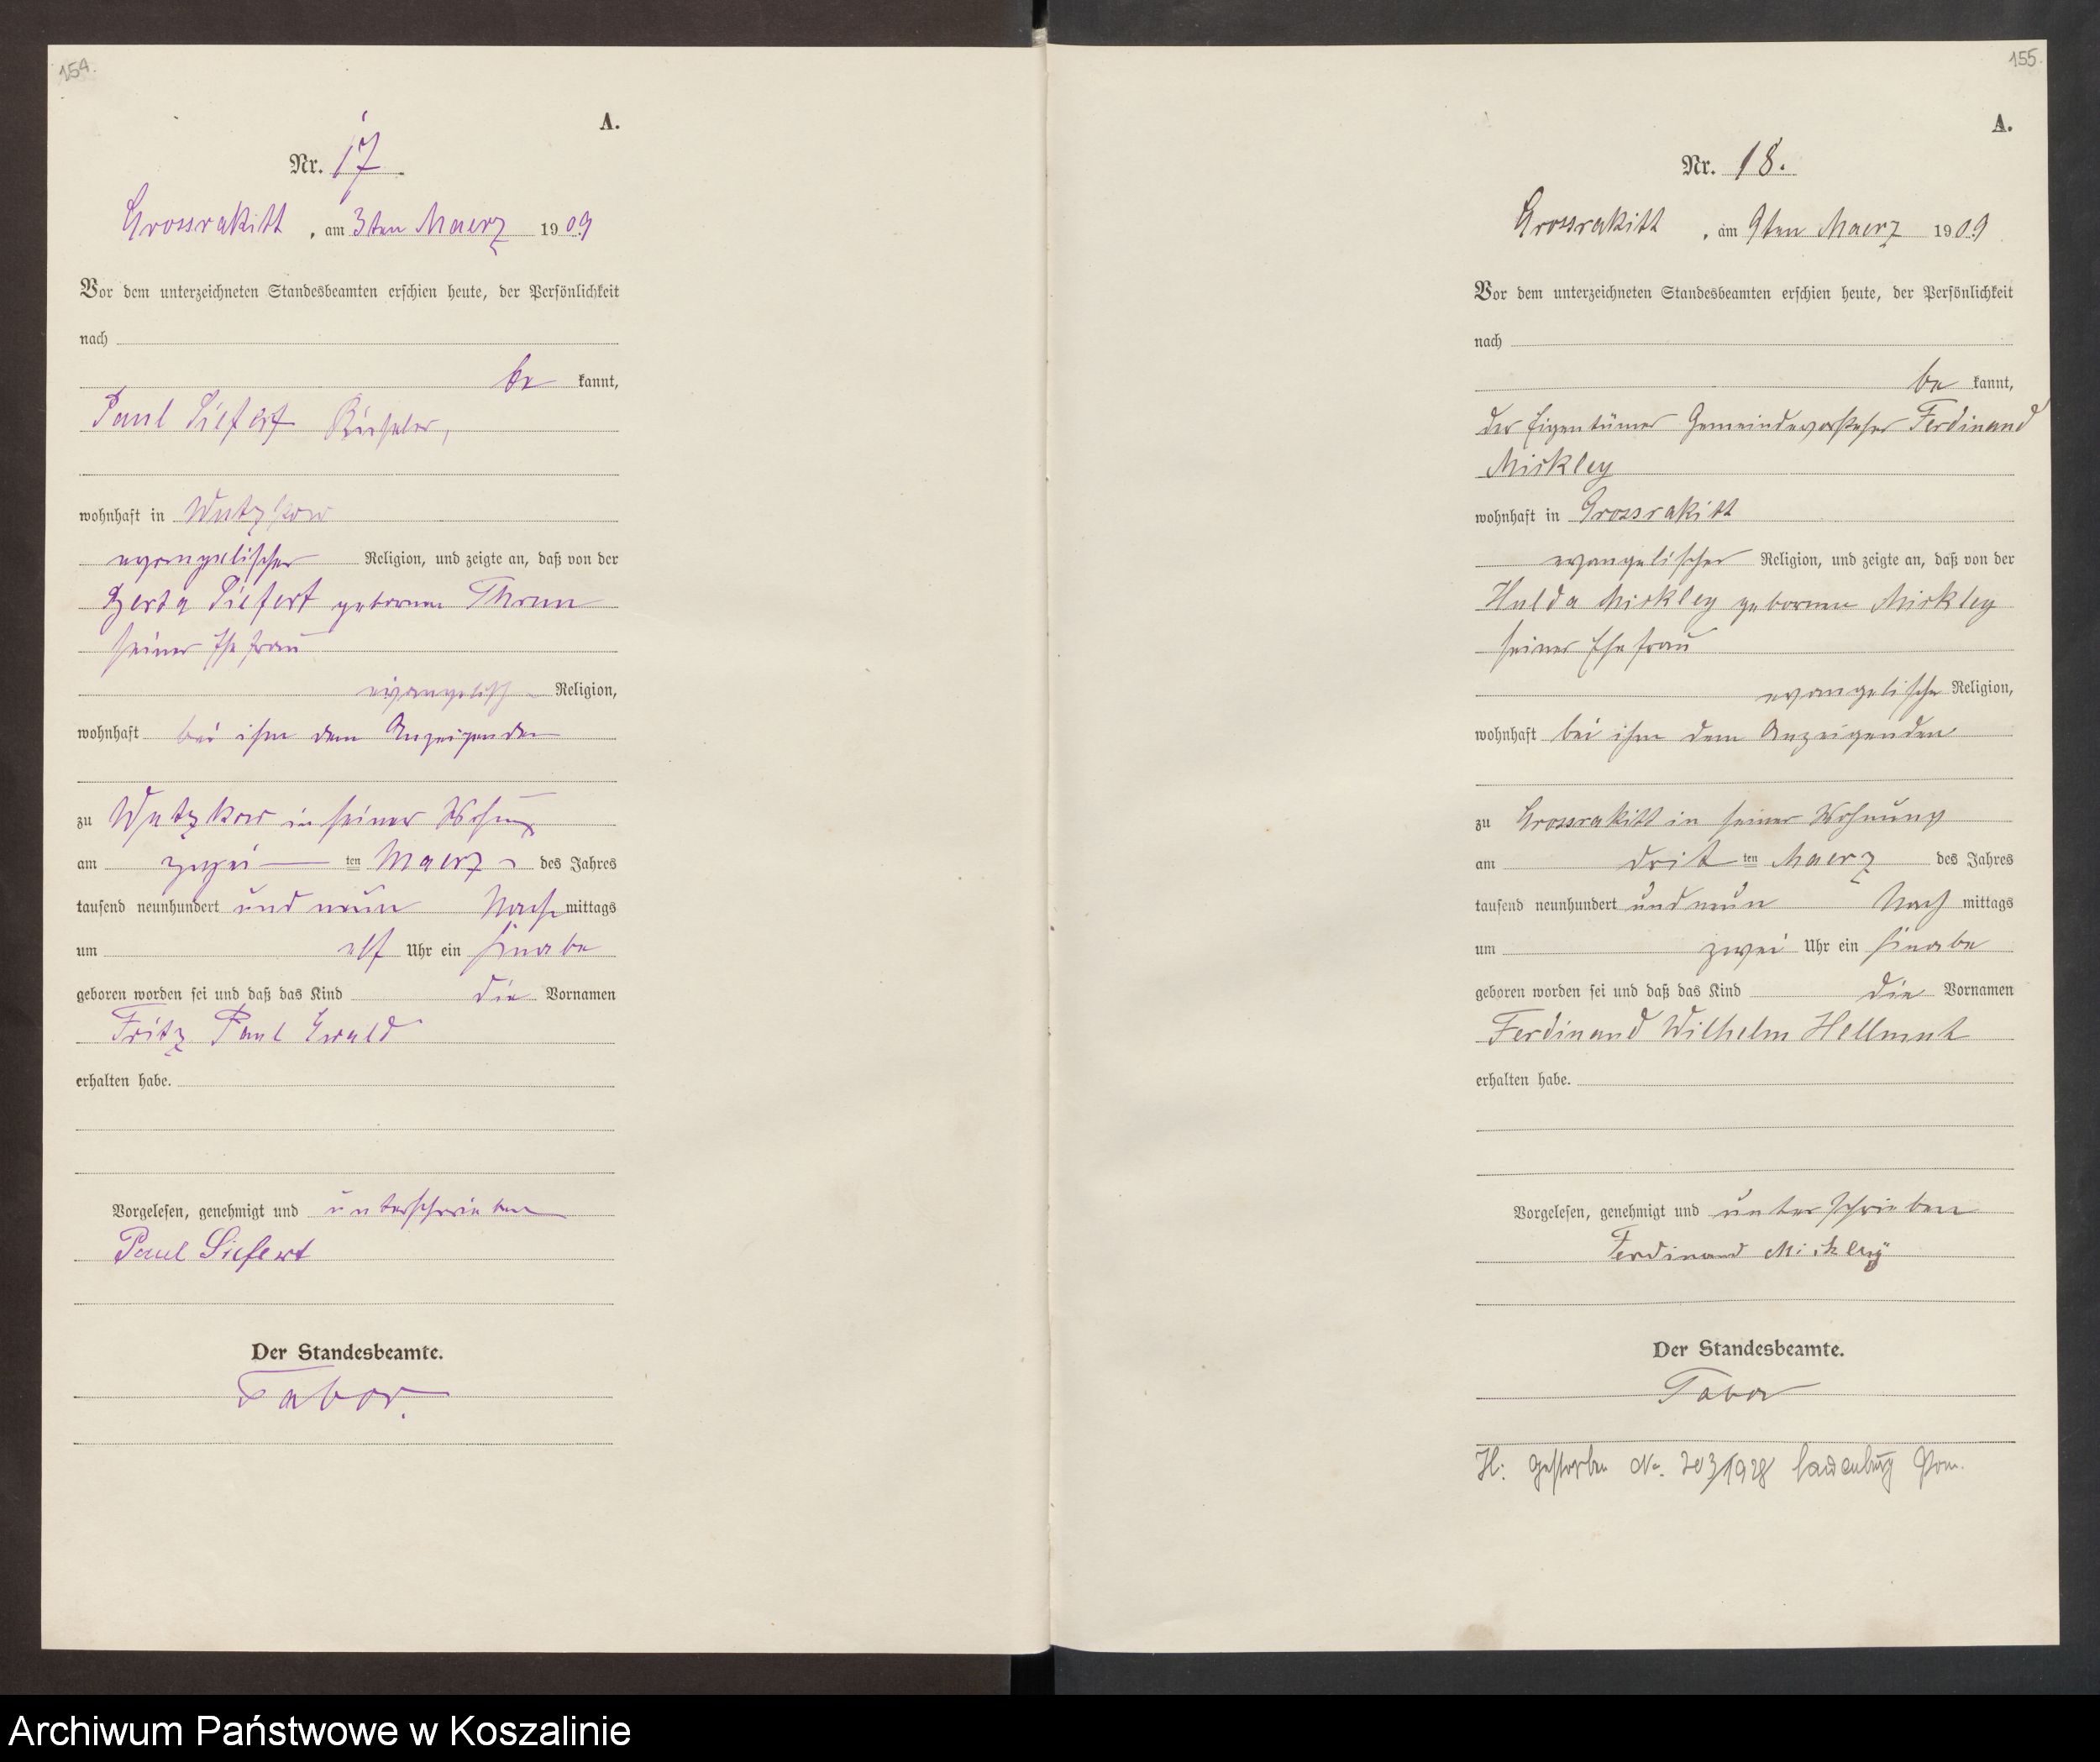 154.
A.
Nr. 17
Grossrakitt, am 3ten Maerz 1909
Vor dem unterzeichneten Standesbeamten erschien heute, der Persönlichkeit
nach
be kannt,
Paul Siefert
wohnhaft in Wutzkow
evangelischer Religion, und zeigte an, daß von der
Herta Siefert geborenen Thrun
seiner Ehefrau
evangelisch Religion,
wohnhaft bei ihm dem Anzeigenden
zu Wutzkow in seiner Wohnung
am zwei ten Maerz des Jahres
tausend neunhundert und neun Nach mittags
um elf Uhr ein Knabe
geboren worden sei und daß das Kind die Vornamen
Fritz Paul Ewald
erhalten habe.
Vorgelesen, genehmigt und unterschrieben
Paul Siefert
Der Standesbeamte.
Tabor.
155.
A.
Nr. 18.
Grossrakitt, am 9ten Maerz 1909
Vor dem unterzeichneten Standesbeamten erschien heute, der Persönlichkeit
nach
be kannt,
der Eigentümer Gemeindevorsteher Ferdinand
Mickley
wohnhaft in Grossrakitt
evangelischer Religion, und zeigte an, daß von der
Hulda Mickley geborenen Mickley
seiner Ehefrau
evangelische Religion,
wohnhaft bei ihm dem Anzeigenden
zu Grossrakitt in seiner Wohnung
am drit ten Maerz des Jahres
tausend neunhundert und neun Nach mittags
um zwei Uhr ein Knabe
geboren worden sei und daß das Kind die Vornamen
Ferdinand Wilhelm Hellmut
erhalten habe.
Vorgelesen, genehmigt und unterschrieben
Ferdinand Mickley
Der Standesbeamte.
Tabor
H: gestorben Nr. 203/1928 Lauenburg Pom.
Archiwum Państwowe w Koszalinie